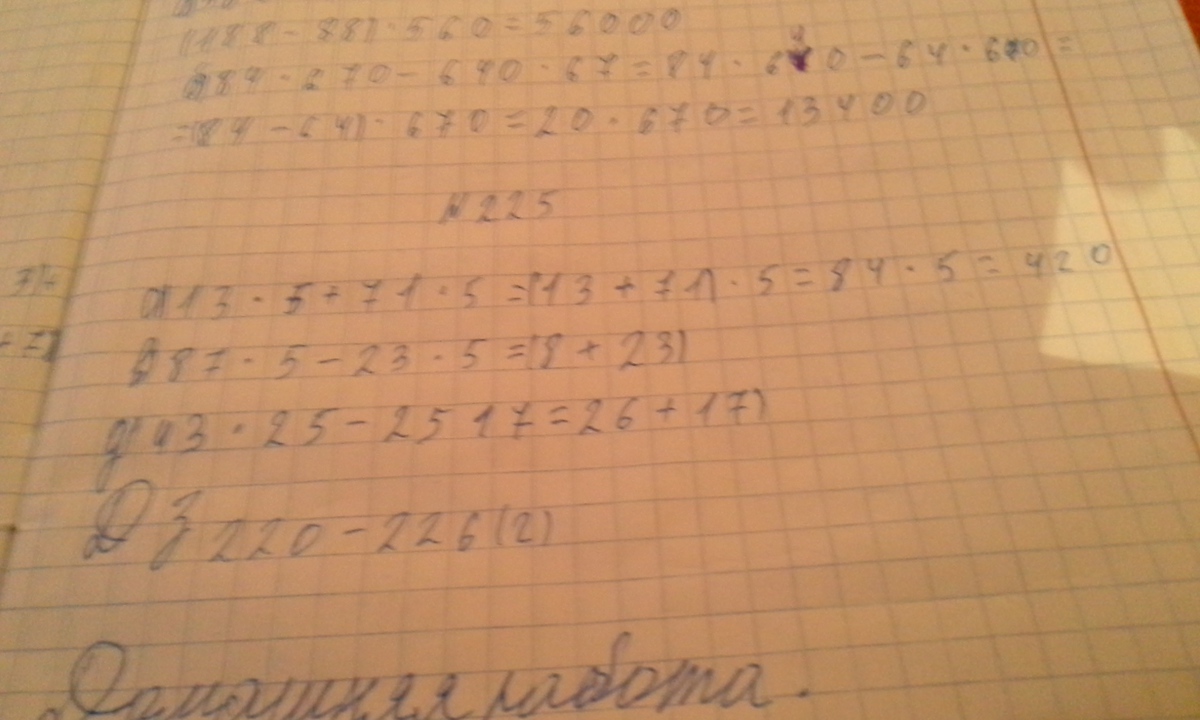 (188-88)·560=56000
84·670-640·67=84·670-64·670=
=(84-64)·670=20·670=13400
N225
а)13·5+71·5=(13+71)·5=84·5=420
87·5-23·5=(8+23)
д)43·25-25 17=26+17)
ДЗ 220-226(2)
Домашняя работа.